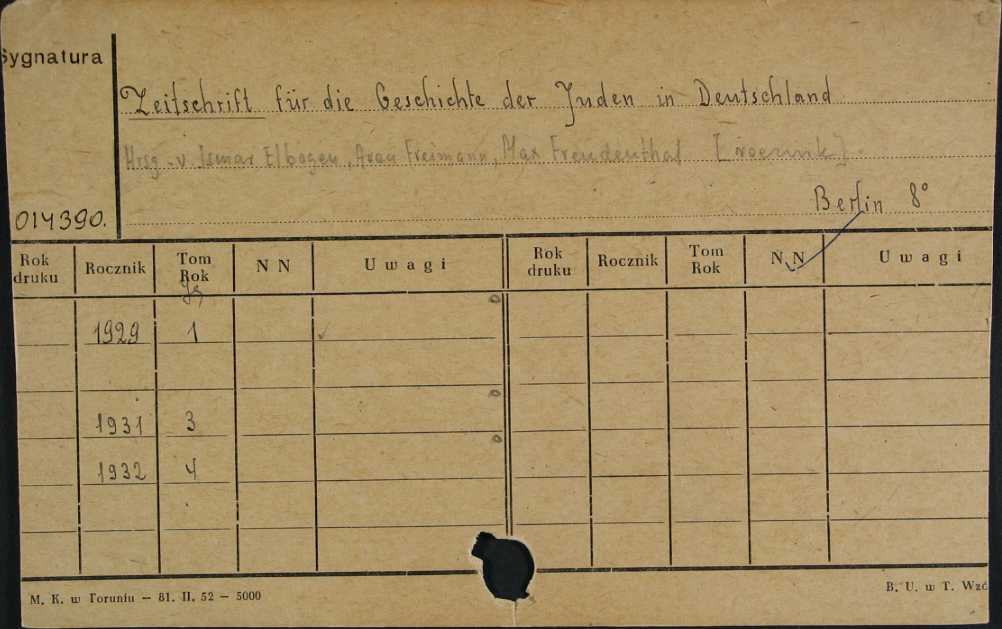 Sygnatura
Zeitschrift für die Geschichte der Juden in Deutschland
Hrsg. v. Ismar Elbogen, Aron Freimann, Max Freudenthal [rocznik].
Berlin 8°
014390.
Rok druku Rocznik Tom Rok N N Uwagi Rok druku Rocznik Tom Rok N N Uwagi
Jg
1929 1
1931 3
1932 4
M. K. w Toruniu — 81. II. 52 — 5000
B. U. w T. Wzó